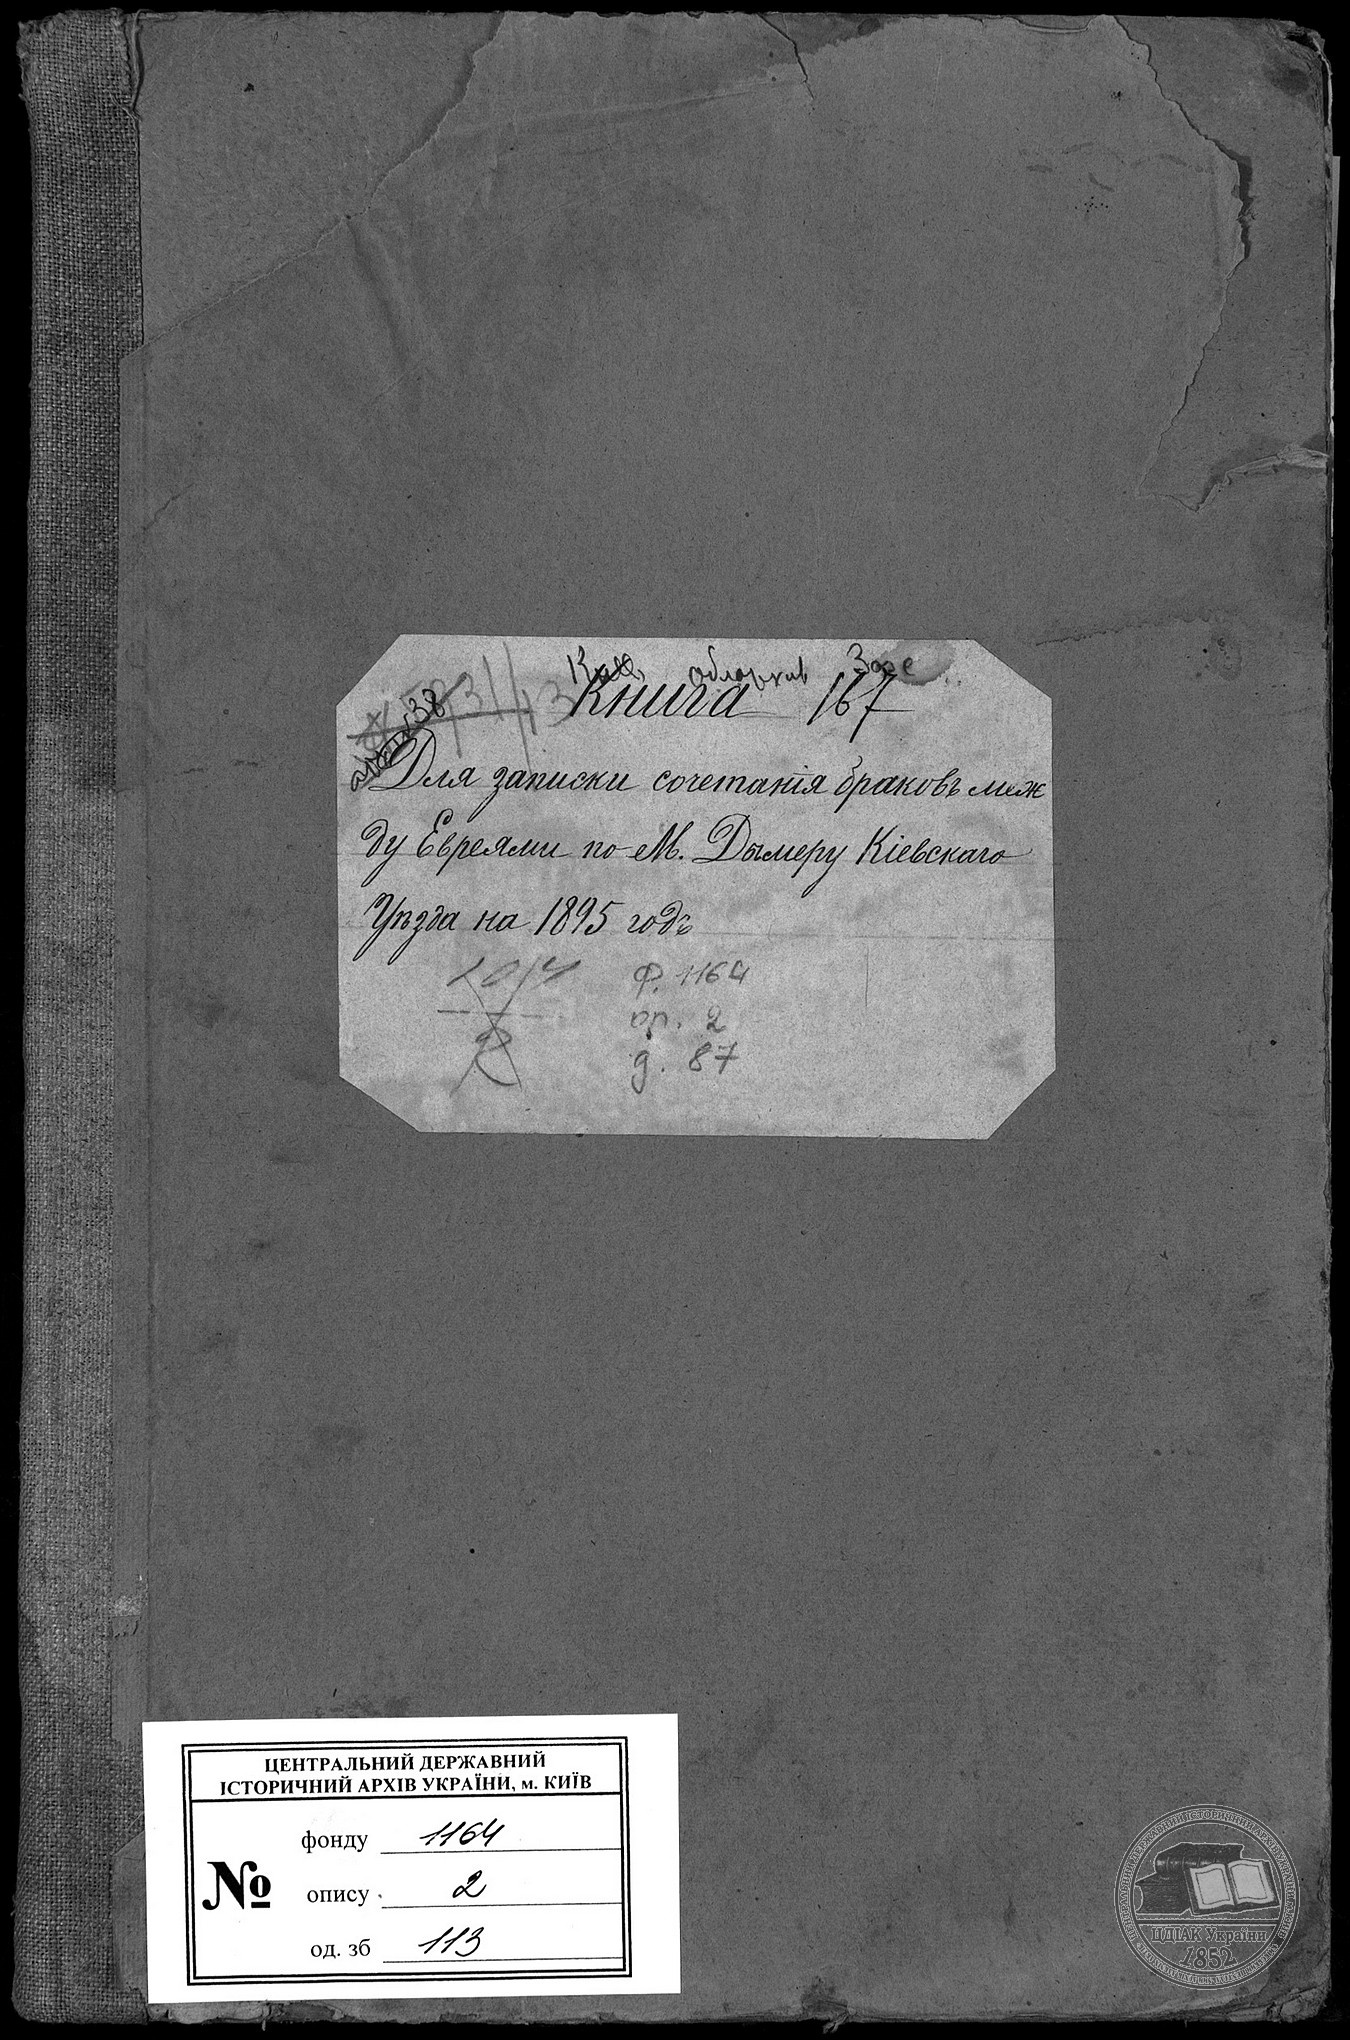 Книга 167
Для записки сочетанія браковъ меж
ду Евреями по М. Дымеру Кіевскаго
Уѣзда на 1895 годъ
ф. 1164
оп. 2
д. 87
ЦЕНТРАЛЬНИЙ ДЕРЖАВНИЙ
ІСТОРИЧНИЙ АРХІВ УКРАЇНИ, м. КИЇВ
№
фонду 1164
опису 2
од. зб 113
ЦДІАК України
1852